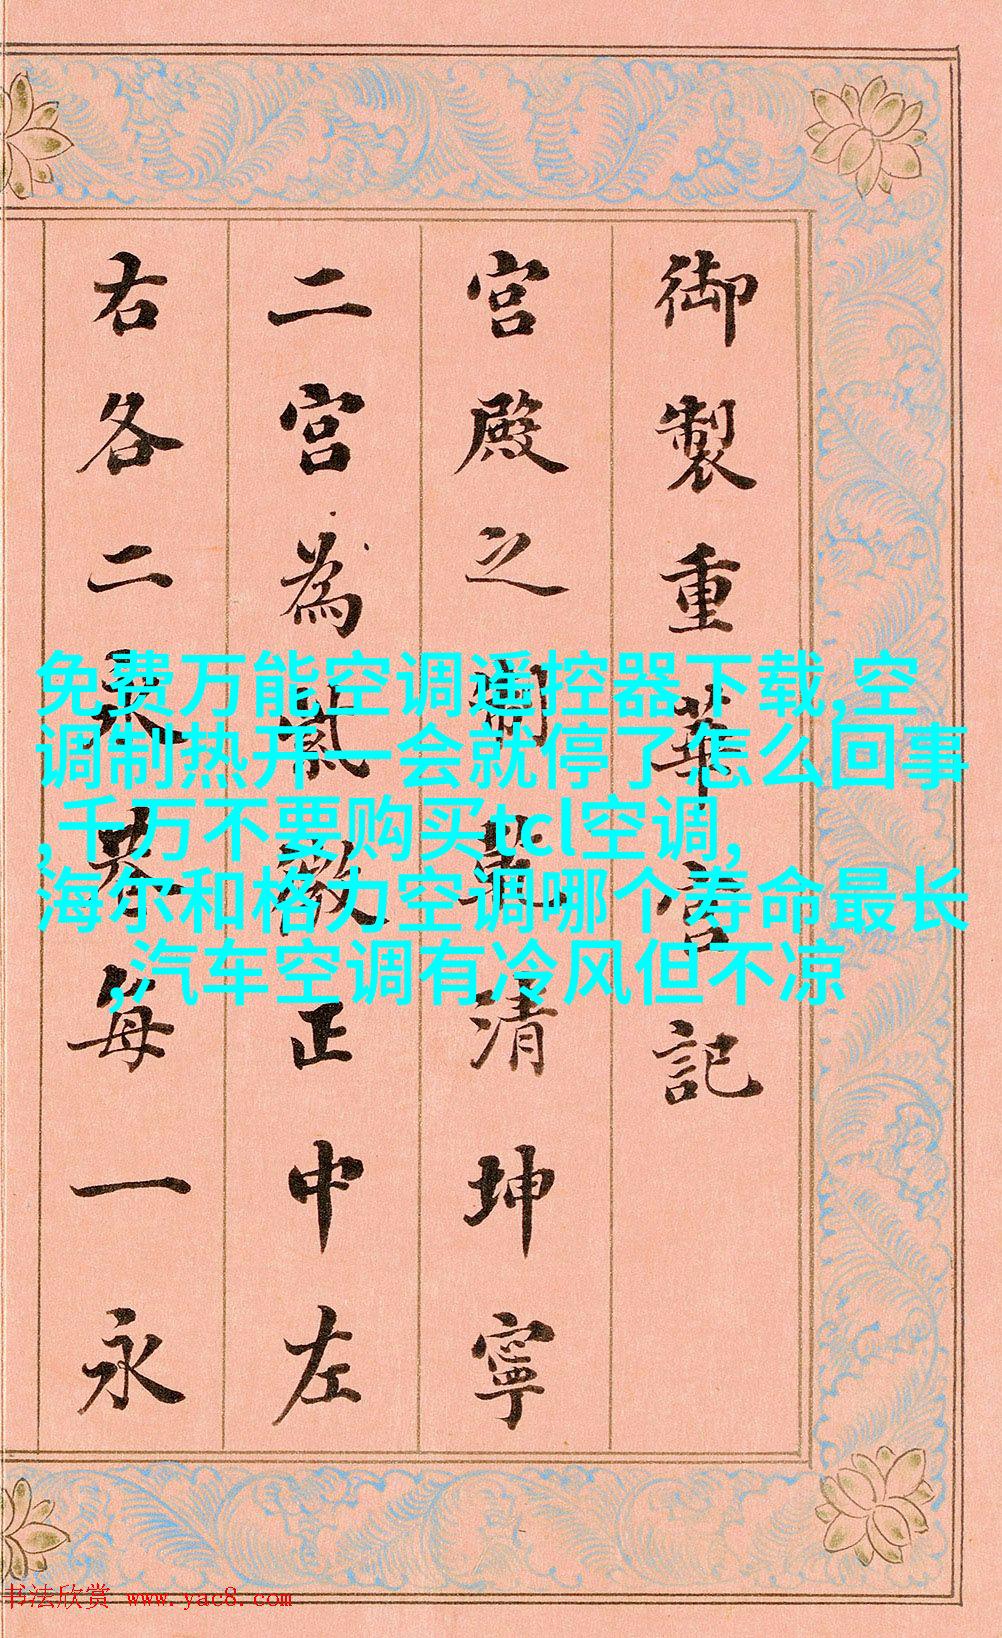 御製重華宮記
宮殿之清坤寧
二宮為正中左
右各二每一永
免费万能空调遥控器下载,空
调制热开一会就停了怎么回事
,千万不要购买tcl空调,
海尔和格力空调哪个寿命最长
,汽车空调有冷风但不凉
书法欣赏 www.yac8.com